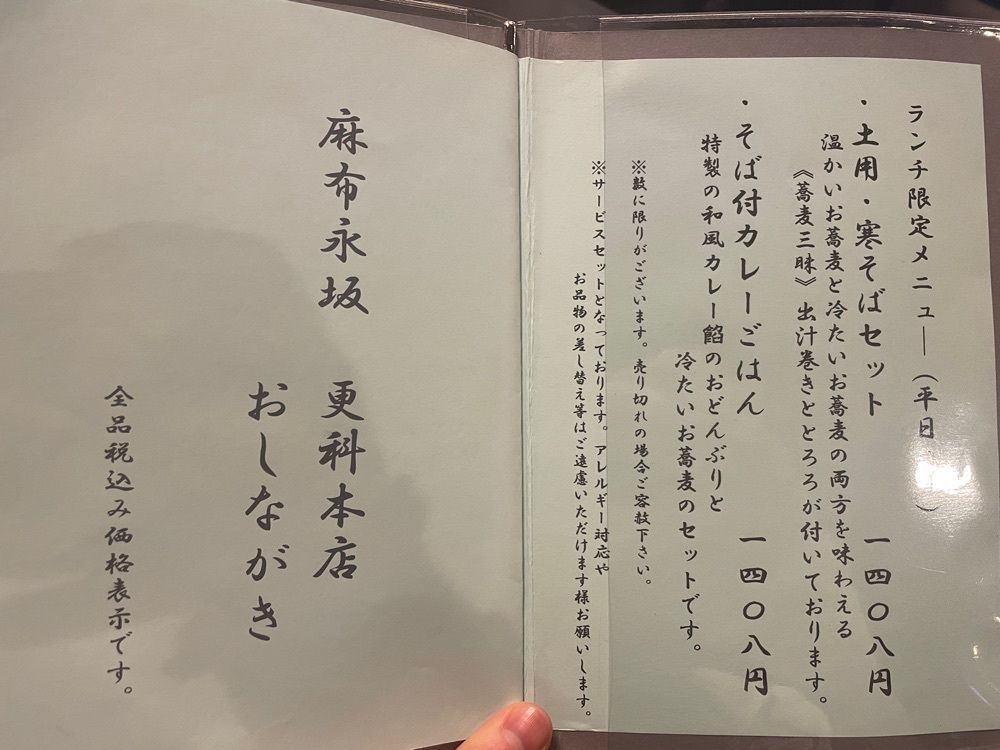 ランチ限定メニュー（平日　）
・土用・寒そばセット　一四〇八円
温かいお蕎麦と冷たいお蕎麦の両方を味わえる
《蕎麦三昧》出汁巻きととろろが付いております。
・そば付カレーごはん　一四〇八円
特製の和風カレー餡のおどんぶりと
冷たいお蕎麦のセットです。
※数に限りがございます。売り切れの場合ご容赦下さい。
※サービスセットとなっております。アレルギー対応や
お品物の差し替え等はご遠慮いただけます様お願いします。
麻布永坂　更科本店
おしながき
全品税込み価格表示です。